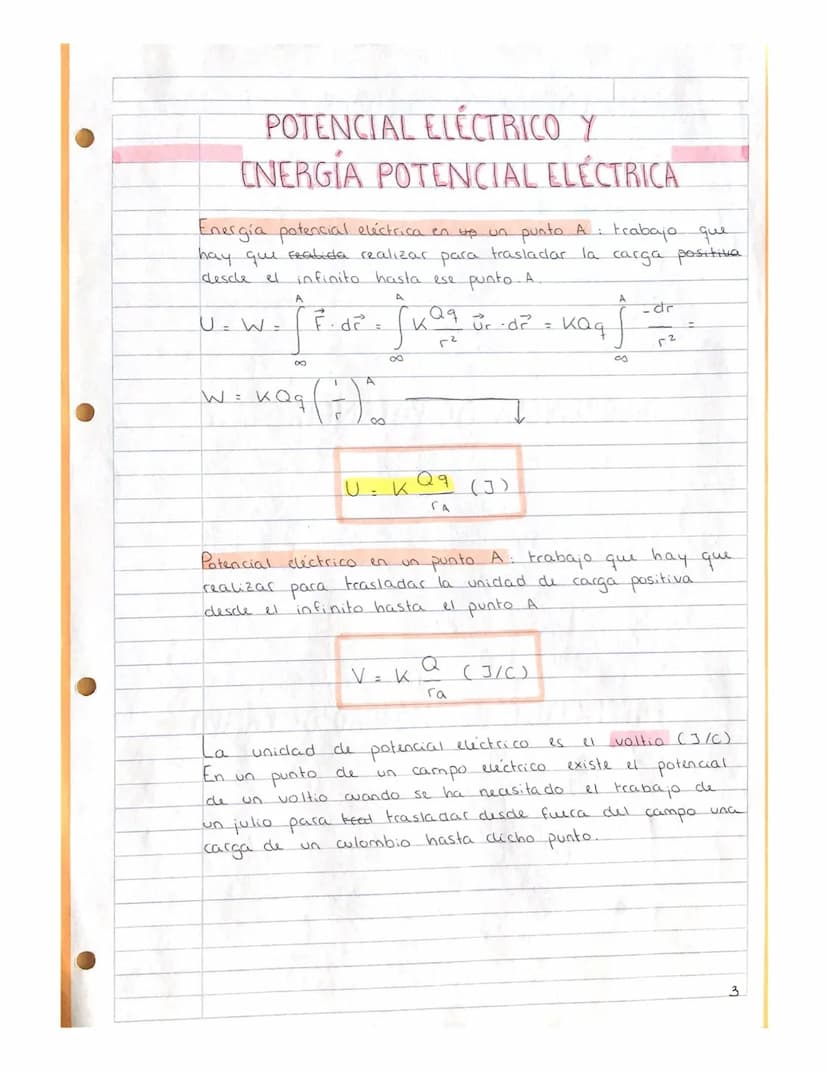 POTENCIAL ELÉCTRICO Y
ENERGÍA POTENCIAL ELÉCTRICA
Energía potencial eléctrica en un punto A : trabajo que
hay que realizar para trasladar la carga positiva
desde el infinito hasta ese punto A.
U = W = ∫_∞^A F⃗ · dr⃗ = ∫_∞^A K Qq/r² u⃗r · dr⃗ = KQq ∫_∞^A -dr/r² =
W = KQq (1/r)_∞^A
U = K Qq/rA (J)
Potencial eléctrico en un punto A : trabajo que hay que
realizar para trasladar la unidad de carga positiva
desde el infinito hasta el punto A
V = K Q/ra (J/C)
La unidad de potencial eléctrico es el voltio (J/C)
En un punto de un campo eléctrico existe el potencial
de un voltio cuando se ha necesitado el trabajo de
un julio para trasladar desde fuera del campo una
carga de un culombio hasta dicho punto.
3